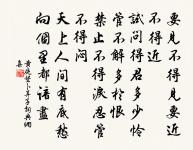 要見不得見要近
不得近
試問得君多少憐
管不解多於恨
禁止不得淚忍管
不得悶
天上人間有底愁
向個里都諳盡
黃庭堅卜算子詞典網